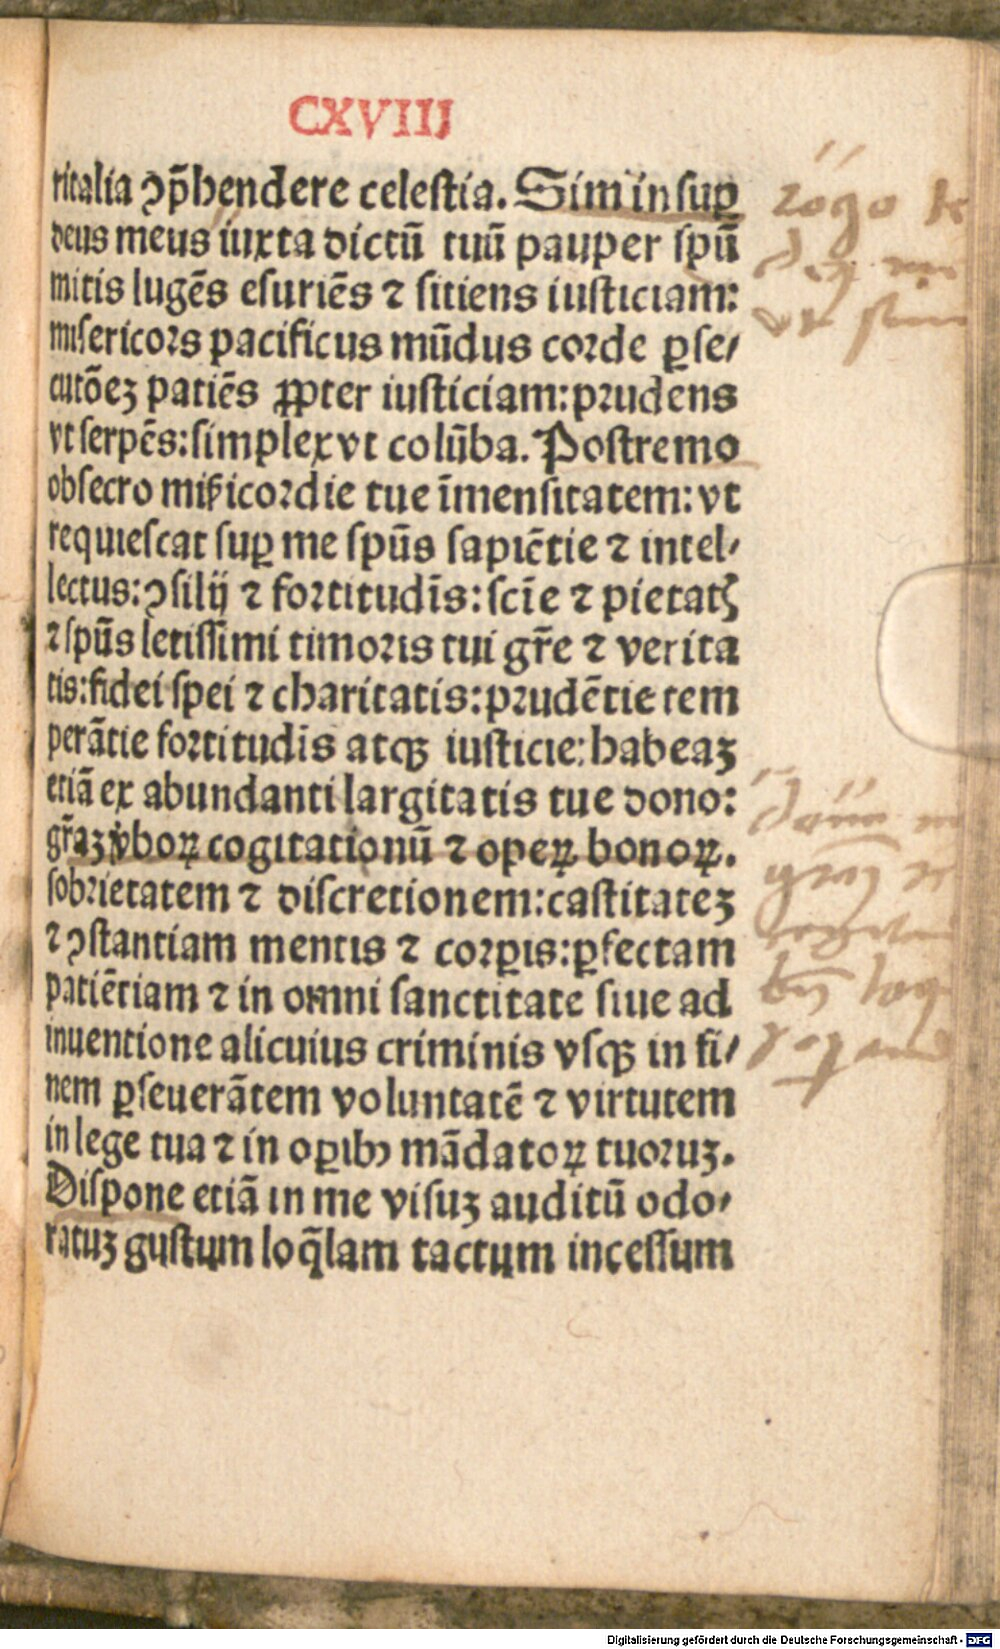 CXVIIJ
ritalia ꝯp̄hendere celestia. Sim insuꝑ
deus meus iuxta dictū tuū pauper spū
mitis lugēs esuriēs ⁊ sitiens iusticiam:
misericors pacificus mūdus corde ꝑse/
cutōeꝫ patiēs ꝓpter iusticiam: prudens
vt serpēs: simplex vt colūba. Postremo
obsecro mīẜicordie tue īmensitatem: vt
requiescat suꝑ me spūs sapiētie ⁊ intel/
lectus: ꝯsilij ⁊ fortitudīs: scīe ⁊ pietatꝭ
⁊ spūs letissimi timoris tui gr̄e ⁊ verita
tis: fidei spei ⁊ charitatis: prudētie tem
perātie fortitudīs atqꝫ iusticie: habeaꝫ
etiā ex abundanti largitatis tue dono:
gr̄aꝫ v̓boꝝ cogitationū ⁊ opeꝝ bonoꝝ.
sobrietatem ⁊ discretionem: castitateꝫ
⁊ ꝯstantiam mentis ⁊ corꝑis: ꝑfectam
patiētiam ⁊ in omni sanctitate siue ad
inuentione alicuius criminis vsqꝫ in fi/
nem ꝑseuerātem voluntatē ⁊ virtutem
in lege tua ⁊ in oꝑibꝰ mādatoꝝ tuoruꝫ.
Dispone etiā in me visuꝫ auditū odo/
ratuꝫ gustum loq̄lam tactum incessum
rogo te
vt sim
Digitalisierung gefördert durch die Deutsche Forschungsgemeinschaft - DFG